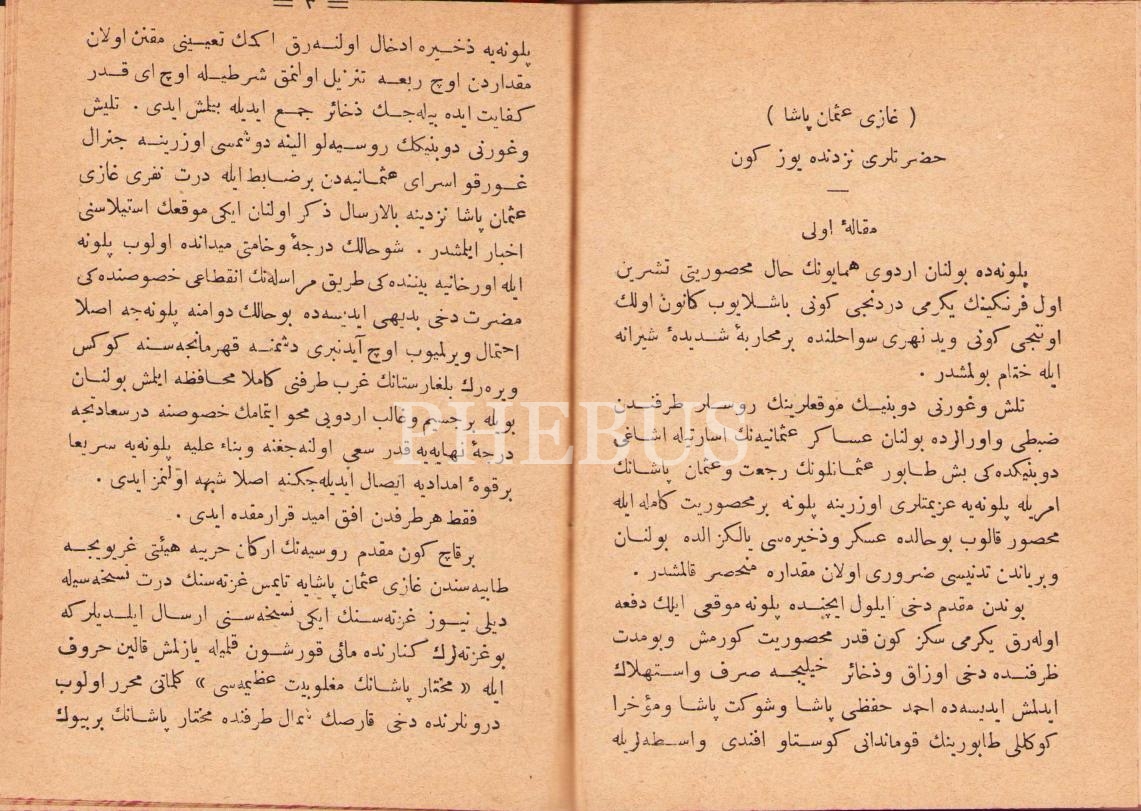 ( غازی عثمان پاشا )
حضرتلری نزدنده یوز کون
مقالهٔ اولی
پلونه‌ده بولنان اردوی همایونك حال محصوریتی تشرین
اول فرنكینك یکرمی دردنجی کونی باشلایوب کانون اولك
اوننجی کونی وید نهری سواحلنده بر محاربهٔ شدیدهٔ شیرانه
ایله ختام بولمشدر .
تلش وغورنی دوبنیك موقعلرینك روسلر طرفندن
ضبطی واورالرده بولنان عساکر عثمانیه‌نك اسارتیله اشاغی
دوبنیکده‌کی بش طابور عثمانلونك رجعت وعثمان پاشانك
امریله پلونه‌یه عزیمتلری اوزرینه پلونه بر محصوریت کامله ایله
محصور قالوب بوحالده عسکر وذخیره‌سی یالکز الده بولنان
وبریاندن تدنیسی ضروری اولان مقداره منحصر قالمشدر .
بوندن مقدم دخی ایلول ایچنده پلونه موقعی ایلك دفعه
اوله‌رق یکرمی سکز کون قدر محصوریت کورمش وبومدت
ظرفنده دخی اوزاق وذخائر خیلیجه صرف واستهلاك
ایدلمش ایدیسه‌ده احمد حفظی پاشا وشوکت پاشا ومؤخرا
کوکللی طابورینك قوماندانی کوستاو افندی واسطه‌لریله
= ٣ =
پلونه‌یه ذخیره ادخال اولنه‌رق اکمك تعیینی مقنن اولان
مقداردن اوچ ربعه تنزیل اولنمق شرطیله اوچ ای قدر
کفایت ایده بیله‌جك ذخائر جمع ایدیله بیلمش ایدی . تلیش
وغورنی دوبنیکك روسیه‌لو الینه دوشمسی اوزرینه جنرال
غورقو اسرای عثمانیه‌دن برضابط ایله درت نفری غازی
عثمان پاشا نزدینه بالارسال ذکر اولنان ایکی موقعك استیلاسنی
اخبار ایلمشدر . شوحالك درجهٔ وخامتی میدانده اولوب پلونه
ایله اورخانیه بیننده‌کی طریق مراسله‌نك انقطاعی خصوصنده‌کی
مضرت دخی بدیهی ایدیسه‌ده بوحالك دوامنه پلونه‌جه اصلا
احتمال ویرلمیوب اوچ آیدنبری دشمنه قهرمانجه‌سنه کوکس
ویره‌رك بلغارستانك غرب طرفنی کاملا محافظه ایلمش بولنان
بویله بر جسیم وغالب اردویی محو ایتمامك خصوصنه درسعادتجه
درجهٔ نهایه‌یه قدر سعی اولنه‌جغنه وبناء علیه پلونه‌یه سریعا
برقوهٔ امدادیه ایصال ایدیله‌جکنه اصلا شبهه اولنمز ایدی .
فقط هرطرفدن افق امید قرارمقده ایدی .
برقاچ کون مقدم روسیه‌نك ارکان حربیه هیئتی غریویجه
طابیه‌سندن غازی عثمان پاشایه تایمس غزته‌سنك درت نسخه‌سیله
دیلی نیوز غزته‌سنك ایکی نسخه‌سنی ارسال ایلدیلرکه
بوغزته‌لرك کنارنده مائی قورشون قلمیله یازلمش قالین حروف
ایله « مختار پاشانك مغلوبیت عظیمه‌سی » کلماتی محرر اولوب
درونلرنده دخی قارصك شمال طرفنده مختار پاشانك بربیوك
PHEBUS